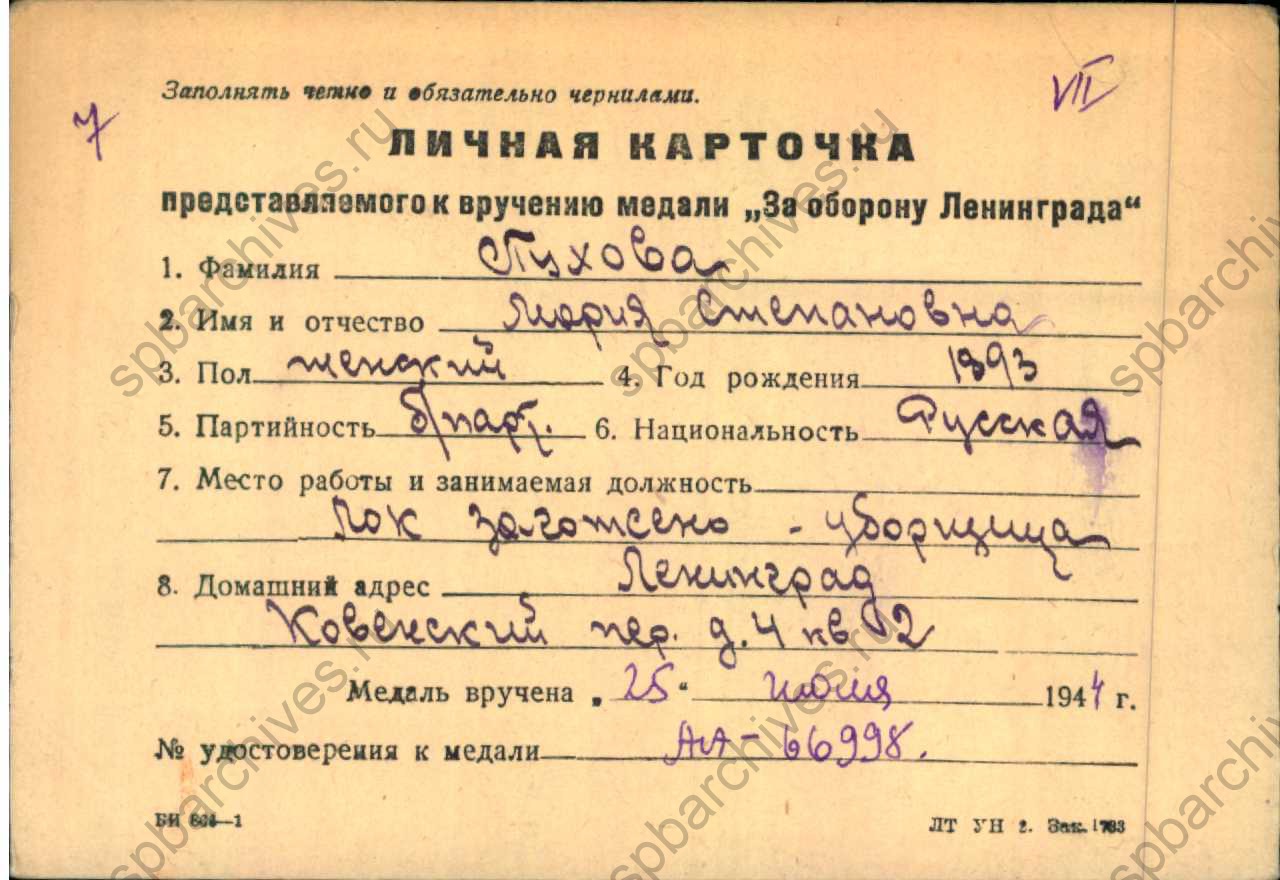 Заполнять четно и обязательно чернилами.
VII
7
ЛИЧНАЯ КАРТОЧКА
представляемого к вручению медали „За оборону Ленинграда“
1. Фамилия Пухова
2. Имя и отчество Мария Степановна
3. Пол женский 4. Год рождения 1893
5. Партийность б/парт. 6. Национальность Русская
7. Место работы и занимаемая должность
Лок Заготсено - уборщица
8. Домашний адрес Ленинград
Ковенский пер. д. 4 кв 2
Медаль вручена „25“ июля 1944 г.
№ удостоверения к медали АА-66998.
БИ 864—1
ЛТ УН 2. Зак. 1783
spbarchives.ru